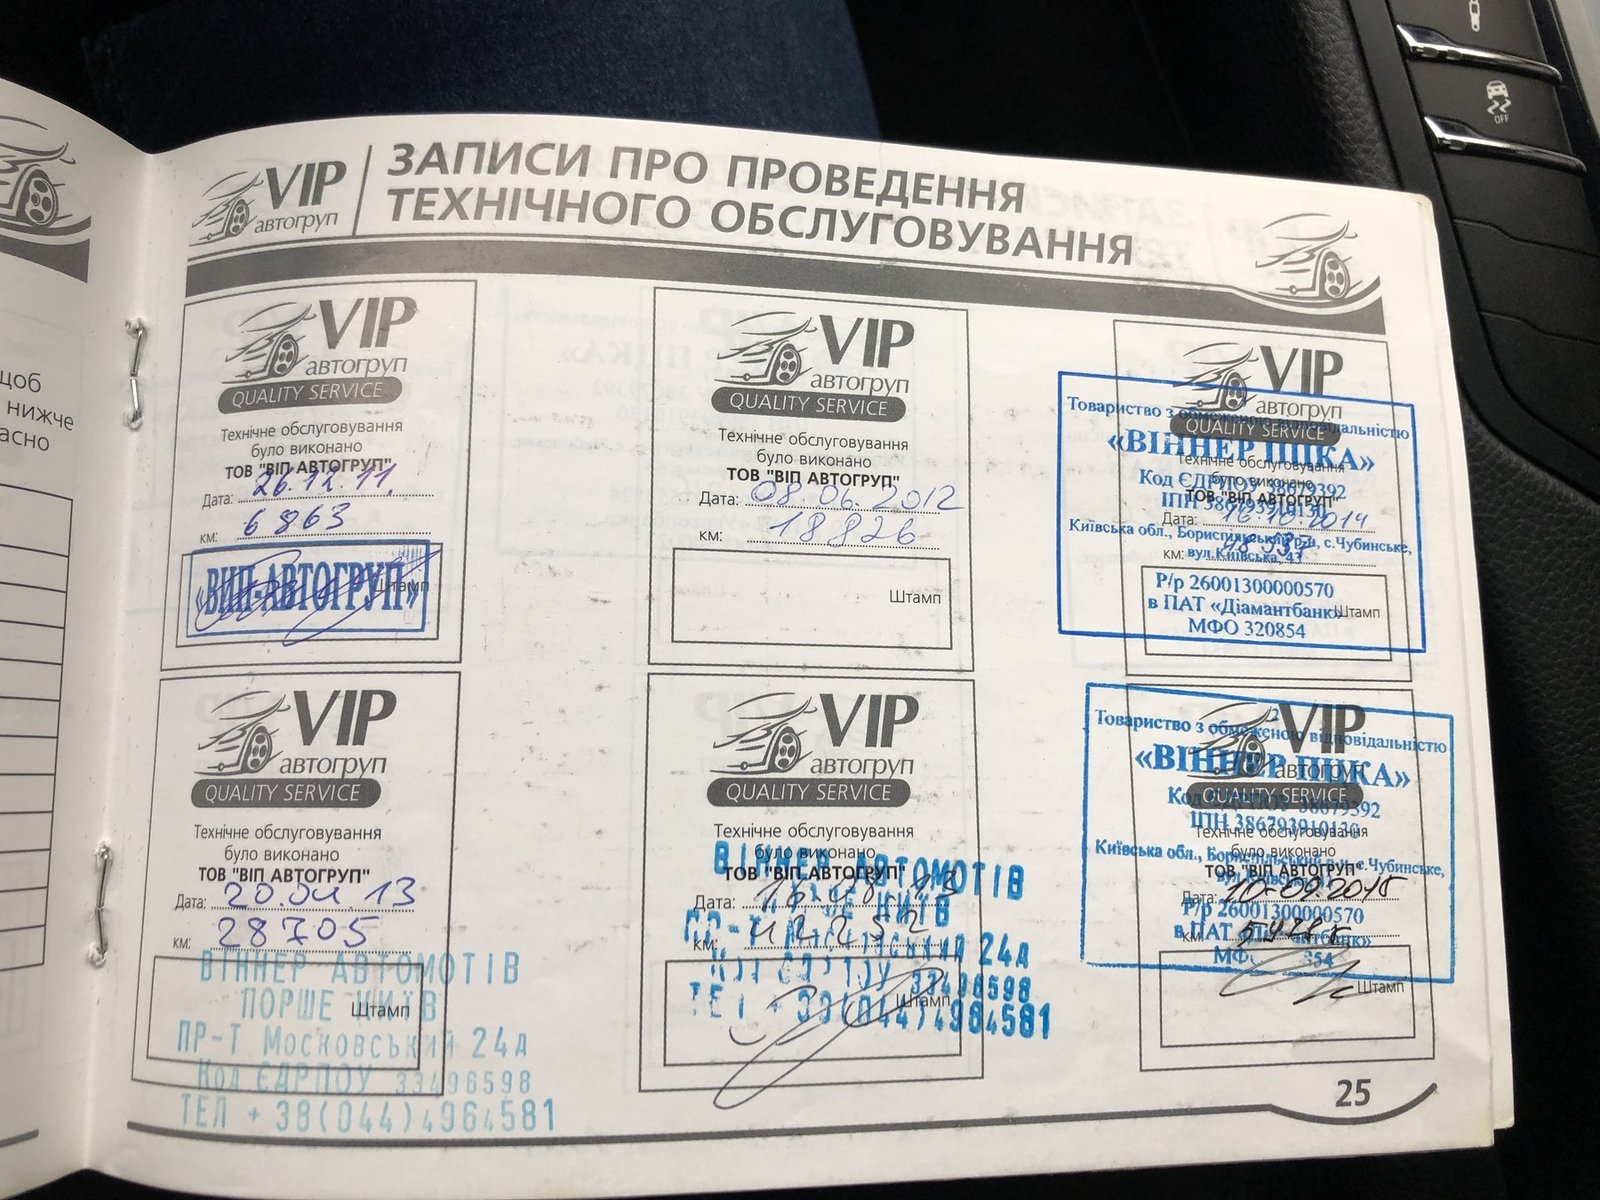 щоб
нижче
асно
VIP
автогруп
ЗАПИСИ ПРО ПРОВЕДЕННЯ
ТЕХНІЧНОГО ОБСЛУГОВУВАННЯ
VIP
автогруп
QUALITY SERVICE
Технічне обслуговування
було виконано
ТОВ "ВІП АВТОГРУП"
Дата: 26.12.11.
км: 6863
«ВИП-АВТОГРУП»
Штамп
VIP
автогруп
QUALITY SERVICE
Технічне обслуговування
було виконано
ТОВ "ВІП АВТОГРУП"
Дата: 08.06.2012
км: 18826
Штамп
VIP
автогруп
QUALITY SERVICE
Технічне обслуговування
було виконано
ТОВ "ВІП АВТОГРУП"
Дата: 16.10.2014
км:
Штамп
Товариство з обмеженою відповідальністю
«ВІННЕР ІШКА»
Код ЄДРПОУ 38679392
ІПН 386793910130
Київська обл., Бориспільський р-н, с.Чубинське,
вул.Київська, 43
Р/р 26001300000570
в ПАТ «Діамантбанк»
МФО 320854
VIP
автогруп
QUALITY SERVICE
Технічне обслуговування
було виконано
ТОВ "ВІП АВТОГРУП"
Дата: 20.04.13
км: 28705
Штамп
ВІННЕР АВТОМОТІВ
ПОРШЕ КИЇВ
ПР-Т Московський 24д
Код ЄДРПОУ 33496598
ТЕЛ +38(044)4964581
VIP
автогруп
QUALITY SERVICE
Технічне обслуговування
було виконано
ТОВ "ВІП АВТОГРУП"
Дата:
км:
Штамп
ВІННЕР АВТОМОТІВ
КИЇВ
ПР-Т Московський 24д
Код ЄДРПОУ 33496598
ТЕЛ +38(044)4964581
VIP
автогруп
QUALITY SERVICE
Технічне обслуговування
було виконано
ТОВ "ВІП АВТОГРУП"
Дата: 10.09.2015
км:
Штамп
Товариство з обмеженою відповідальністю
«ВІННЕР ІШКА»
Код ЄДРПОУ 38679392
ІПН 386793910130
Київська обл., Бориспільський р-н, с.Чубинське,
Р/р 26001300000570
в ПАТ «Діамантбанк»
МФО
25
OFF